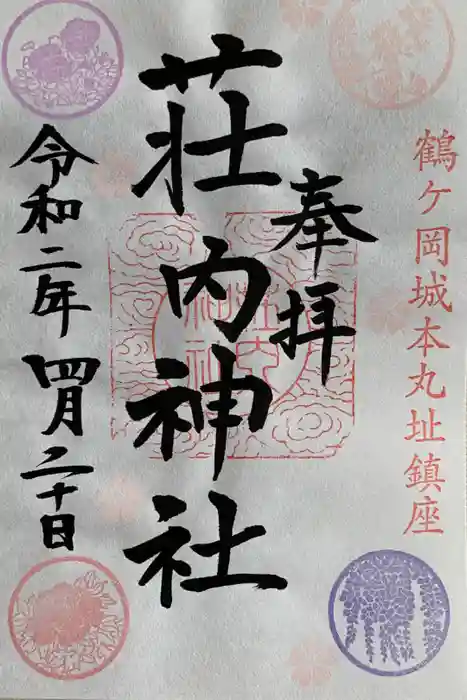 鶴ケ岡城本丸址鎮座
奉拝
荘内神社
令和二年四月二十日